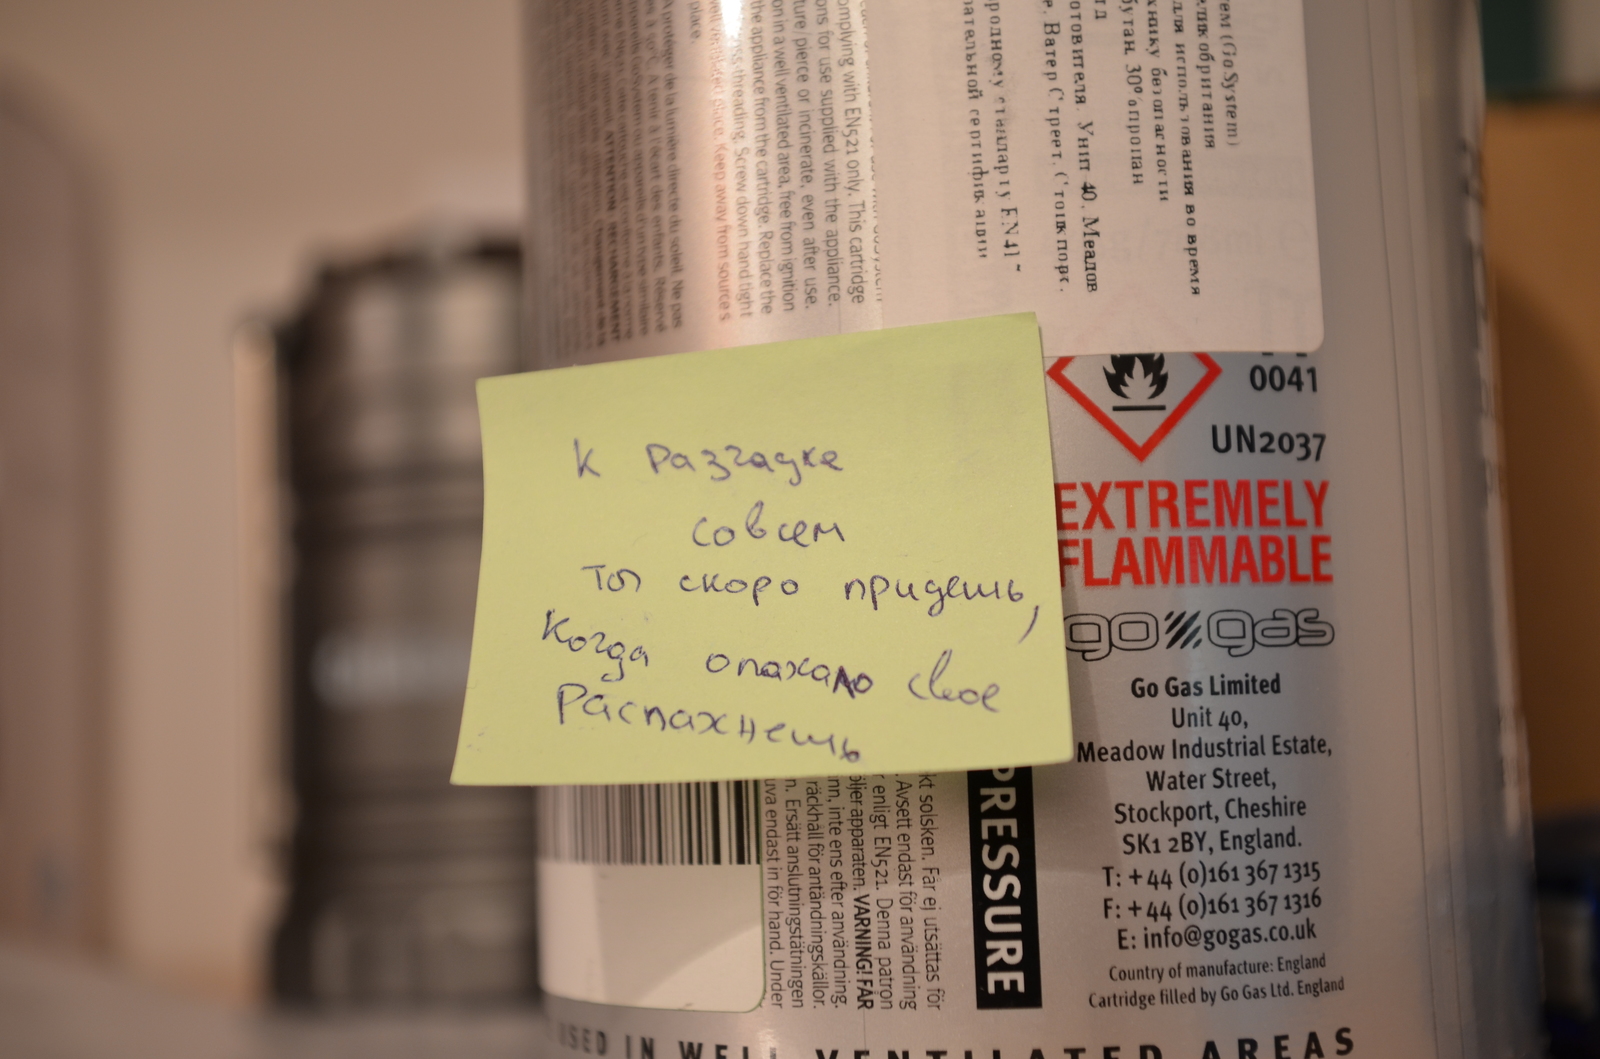 К разгадке
совсем
Ты скоро придешь,
Когда опахало свое
Распахнешь
0041
UN2037
EXTREMELY
FLAMMABLE
go gas
Go Gas Limited
Unit 40,
Meadow Industrial Estate,
Water Street,
Stockport, Cheshire
SK1 2BY, England.
T: +44 (0)161 367 1315
F: +44 (0)161 367 1316
E: info@gogas.co.uk
Country of manufacture: England
Cartridge filled by Go Gas Ltd. England
PRESSURE
USED IN WELL VENTILATED AREAS
omplying with EN521 only. This cartridge
ons for use supplied with the appliance.
ture/pierce or incinerate, even after use.
on in a well ventilated area, free from ignition
the appliance from the cartridge. Replace the
threading. Screw down hand tight
place. Keep away from source s
place.
A protéger de la lumière directe du soleil. Ne pas
тем (GoSystem)
для использования во время
хнику безопасности
бутан, 30% пропан
отовителя. Унит 40, Меадов
е. Ватер Стреет, Стокпорт,
родному стандарту EN41
ательной сертификации
kt solsken. Får ej utsättas för
. Avsett endast för användning
r enligt EN521. Denna patron
öljer apparaten. VARNING! FÅR
nn, inte ens efter användning.
räckhåll för antändningskällor.
n. Ersätt anslutningstätningen
uva endast in för hand. Under